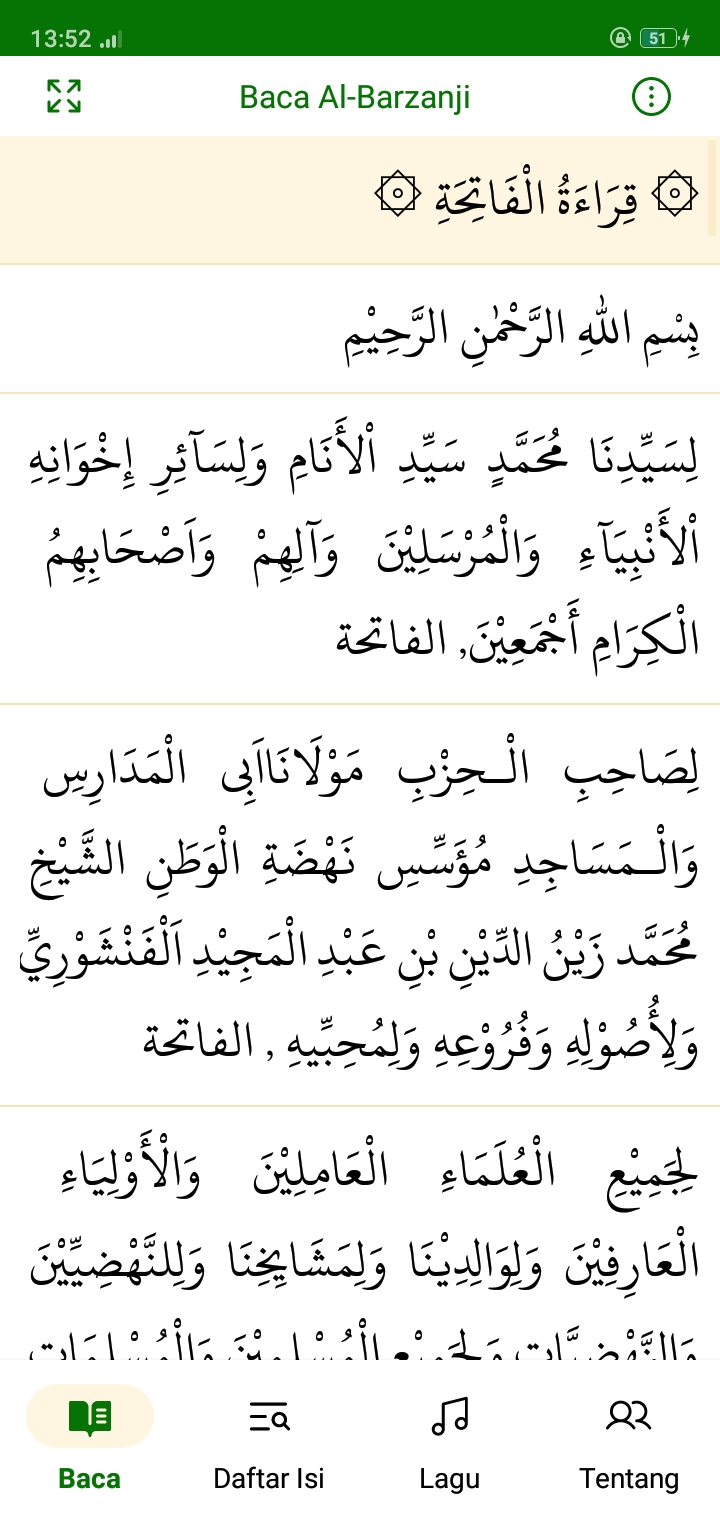 13:52
51
Baca Al-Barzanji
۞ قِرَاءَةُ الْفَاتِحَةِ ۞
بِسْمِ اللّٰهِ الرَّحْمٰنِ الرَّحِيْمِ
لِسَيِّدِنَا مُحَمَّدٍ سَيِّدِ اْلأَنَامِ وَلِسَآئِرِ إِخْوَانِهِ
اْلأَنْبِيَآءِ وَالْمُرْسَلِيْنَ وَآلِهِمْ وَاَصْحَابِهِمُ
الْكِرَامِ أَجْمَعِيْنَ, الفاتحة
لِصَاحِبِ الْـحِزْبِ مَوْلَانَااَبِى الْمَدَارِسِ
وَالْـمَسَاجِدِ مُؤَسِّسِ نَهْضَةِ الْوَطَنِ الشَّيْخِ
مُحَمَّد زَيْنُ الدِّيْنِ بْنِ عَبْدِ الْمَجِيْدِ اَلْفَنْشَوْرِيِّ
وَلِأُصُوْلِهِ وَفُرُوْعِهِ وَلِمُحِبِّيهِ , الفاتحة
لِجَمِيْعِ الْعُلَمَاءِ الْعَامِلِيْنَ وَالْأَوْلِيَاءِ
الْعَارِفِيْنَ وَلِوَالِدِيْنَا وَلِمَشَايِخِنَا وَلِلنَّهْضِيِّيْنَ
وَالنَّهْضِيَّات وَلِجَمِيْعِ الْمُسْلِمِيْنَ وَالْمُسْلِمَات
Baca
Daftar Isi
Lagu
Tentang